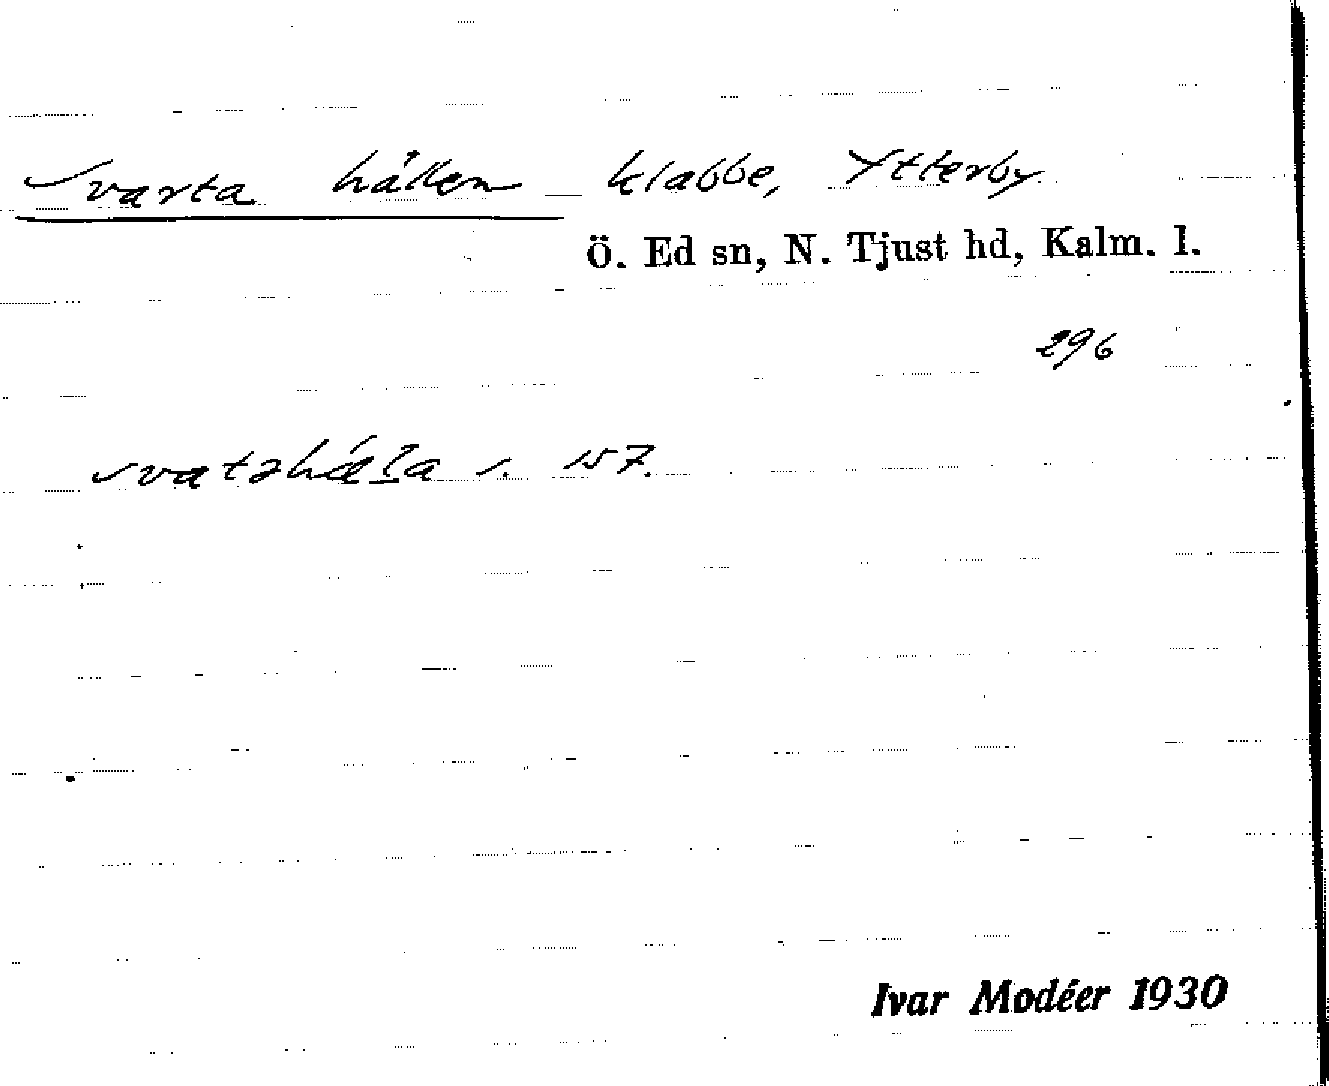 Svarta hällen klabbe, Ytterby
Ö. Ed sn, N. Tjust hd, Kalm. l.
296
s. 157.
Ivar Modéer 1930